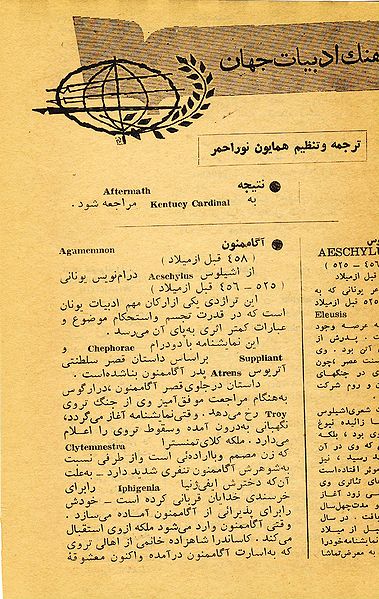 هنگ ادبیات جهان
ترجمه و تنظیم همایون نوراحمر
● نتیجه Aftermath
به Kentucy Cardinal مراجعه شود .
● آگاممنون Agamemnon
( ۴۵۸ قبل ازمیلاد )
از اشیلوس Aeschylus درام‌نویس یونانی
( ۵۲۵ – ۴۵۶ قبل از میلاد )
این تراژدی یکی ازارکان مهم ادبیات یونان
است که در قدرت تجسم واستحکام موضوع و
عبارات کمتر اثری به‌پای آن می‌رسد .
این نمایشنامه با دودرام Chephorae و
Suppliant براساس داستان قصر سلطنتی
آتریوس Atrens پدر آگاممنون بناشده‌است .
داستان درجلوی‌قصر آگاممنون ،درارگوس
به‌هنگام مراجعت موفق‌آمیز وی از جنگ تروی
Troy رخ می‌دهد . وقتی‌نمایشنامه آغاز می‌گردد،
نگهبانی به‌درون آمده وسقوط تروی را اعلام
می‌دارد . ملکه کلای‌تمنسترا Clytemnestra
که زن مصمم وبااراده‌ئی است واز طرفی نسبت
به‌شوهرش آگاممنون تنفری شدید دارد - به‌علت
آن‌که دخترش ایفی‌ژنیا Iphigenia رابرای
خرسندی خدایان قربانی کرده است - خودش
رابرای پذیرائی از آگاممنون آماده می‌سازد .
وقتی آگاممنون وارد می‌شود ملکه ازوی استقبال
می‌کند . کاساندرا شاهزاده خانمی از اهالی تروی
که به‌اسارت آگاممنون درآمده واکنون معشوقهٔ
AESCHYLUS
( ۵۲۵ –
قبل از میلاد
ر یونانی که به
۵۲۵ قبل ازمیلاد
Eleusis
ه عرصه وجود
. پدرش از
آتن بود . وی
در جنگهای
و روم شرکت
شعری‌اشیلوس
زائیده نبوغ
ی بود ، بلکه
که وی در آن
رسید ، نیز
موثر افتاده‌است
های تئاتری وی
ی زود آغاز
ومدت‌چهل‌سال
یافت . در سال
قبل از میلاد
نمایشنامه‌خودرا
به معرض‌تماشا